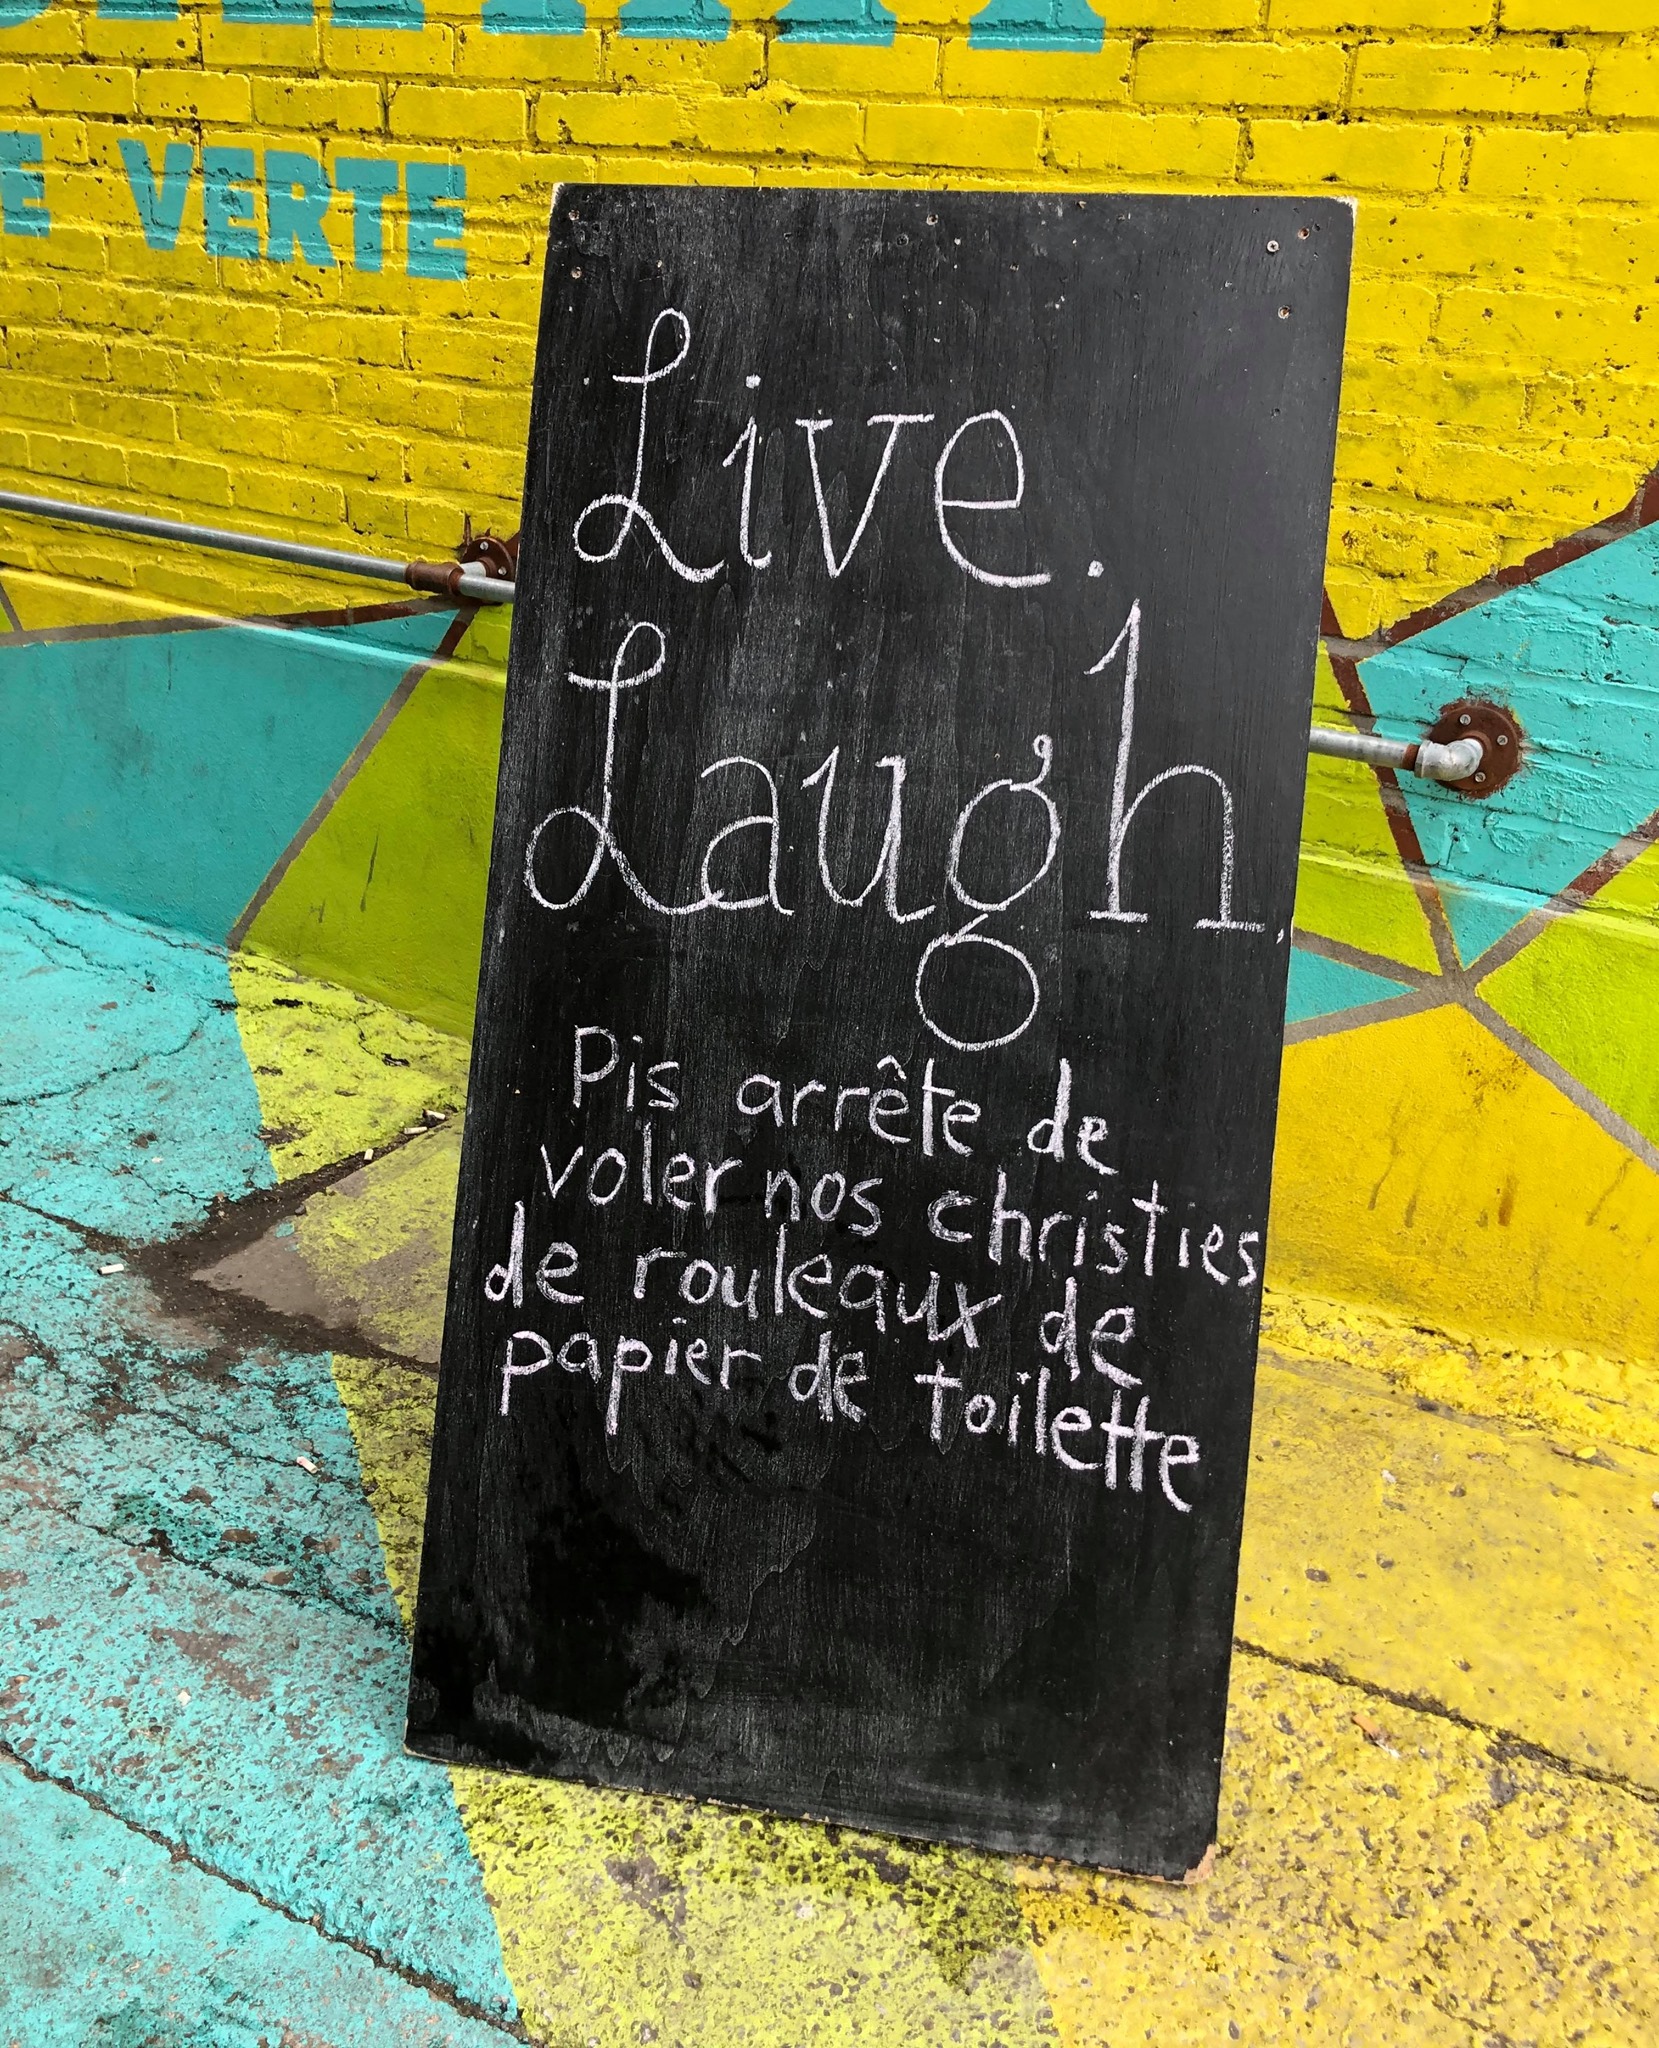 E VERTE
Live.
Laugh.
Pis arrête de
voler nos christies
de rouleaux de
papier de toilette